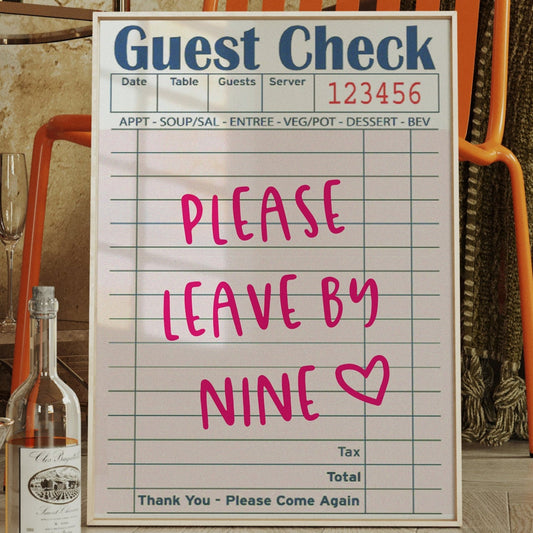 Guest Check
Date Table Guests Server 123456
APPT - SOUP/SAL - ENTREE - VEG/POT - DESSERT - BEV
PLEASE
LEAVE BY
NINE
Tax
Total
Thank You - Please Come Again